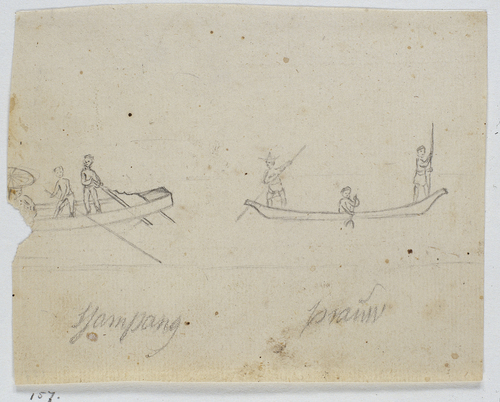 Sjampang
prauw
157.